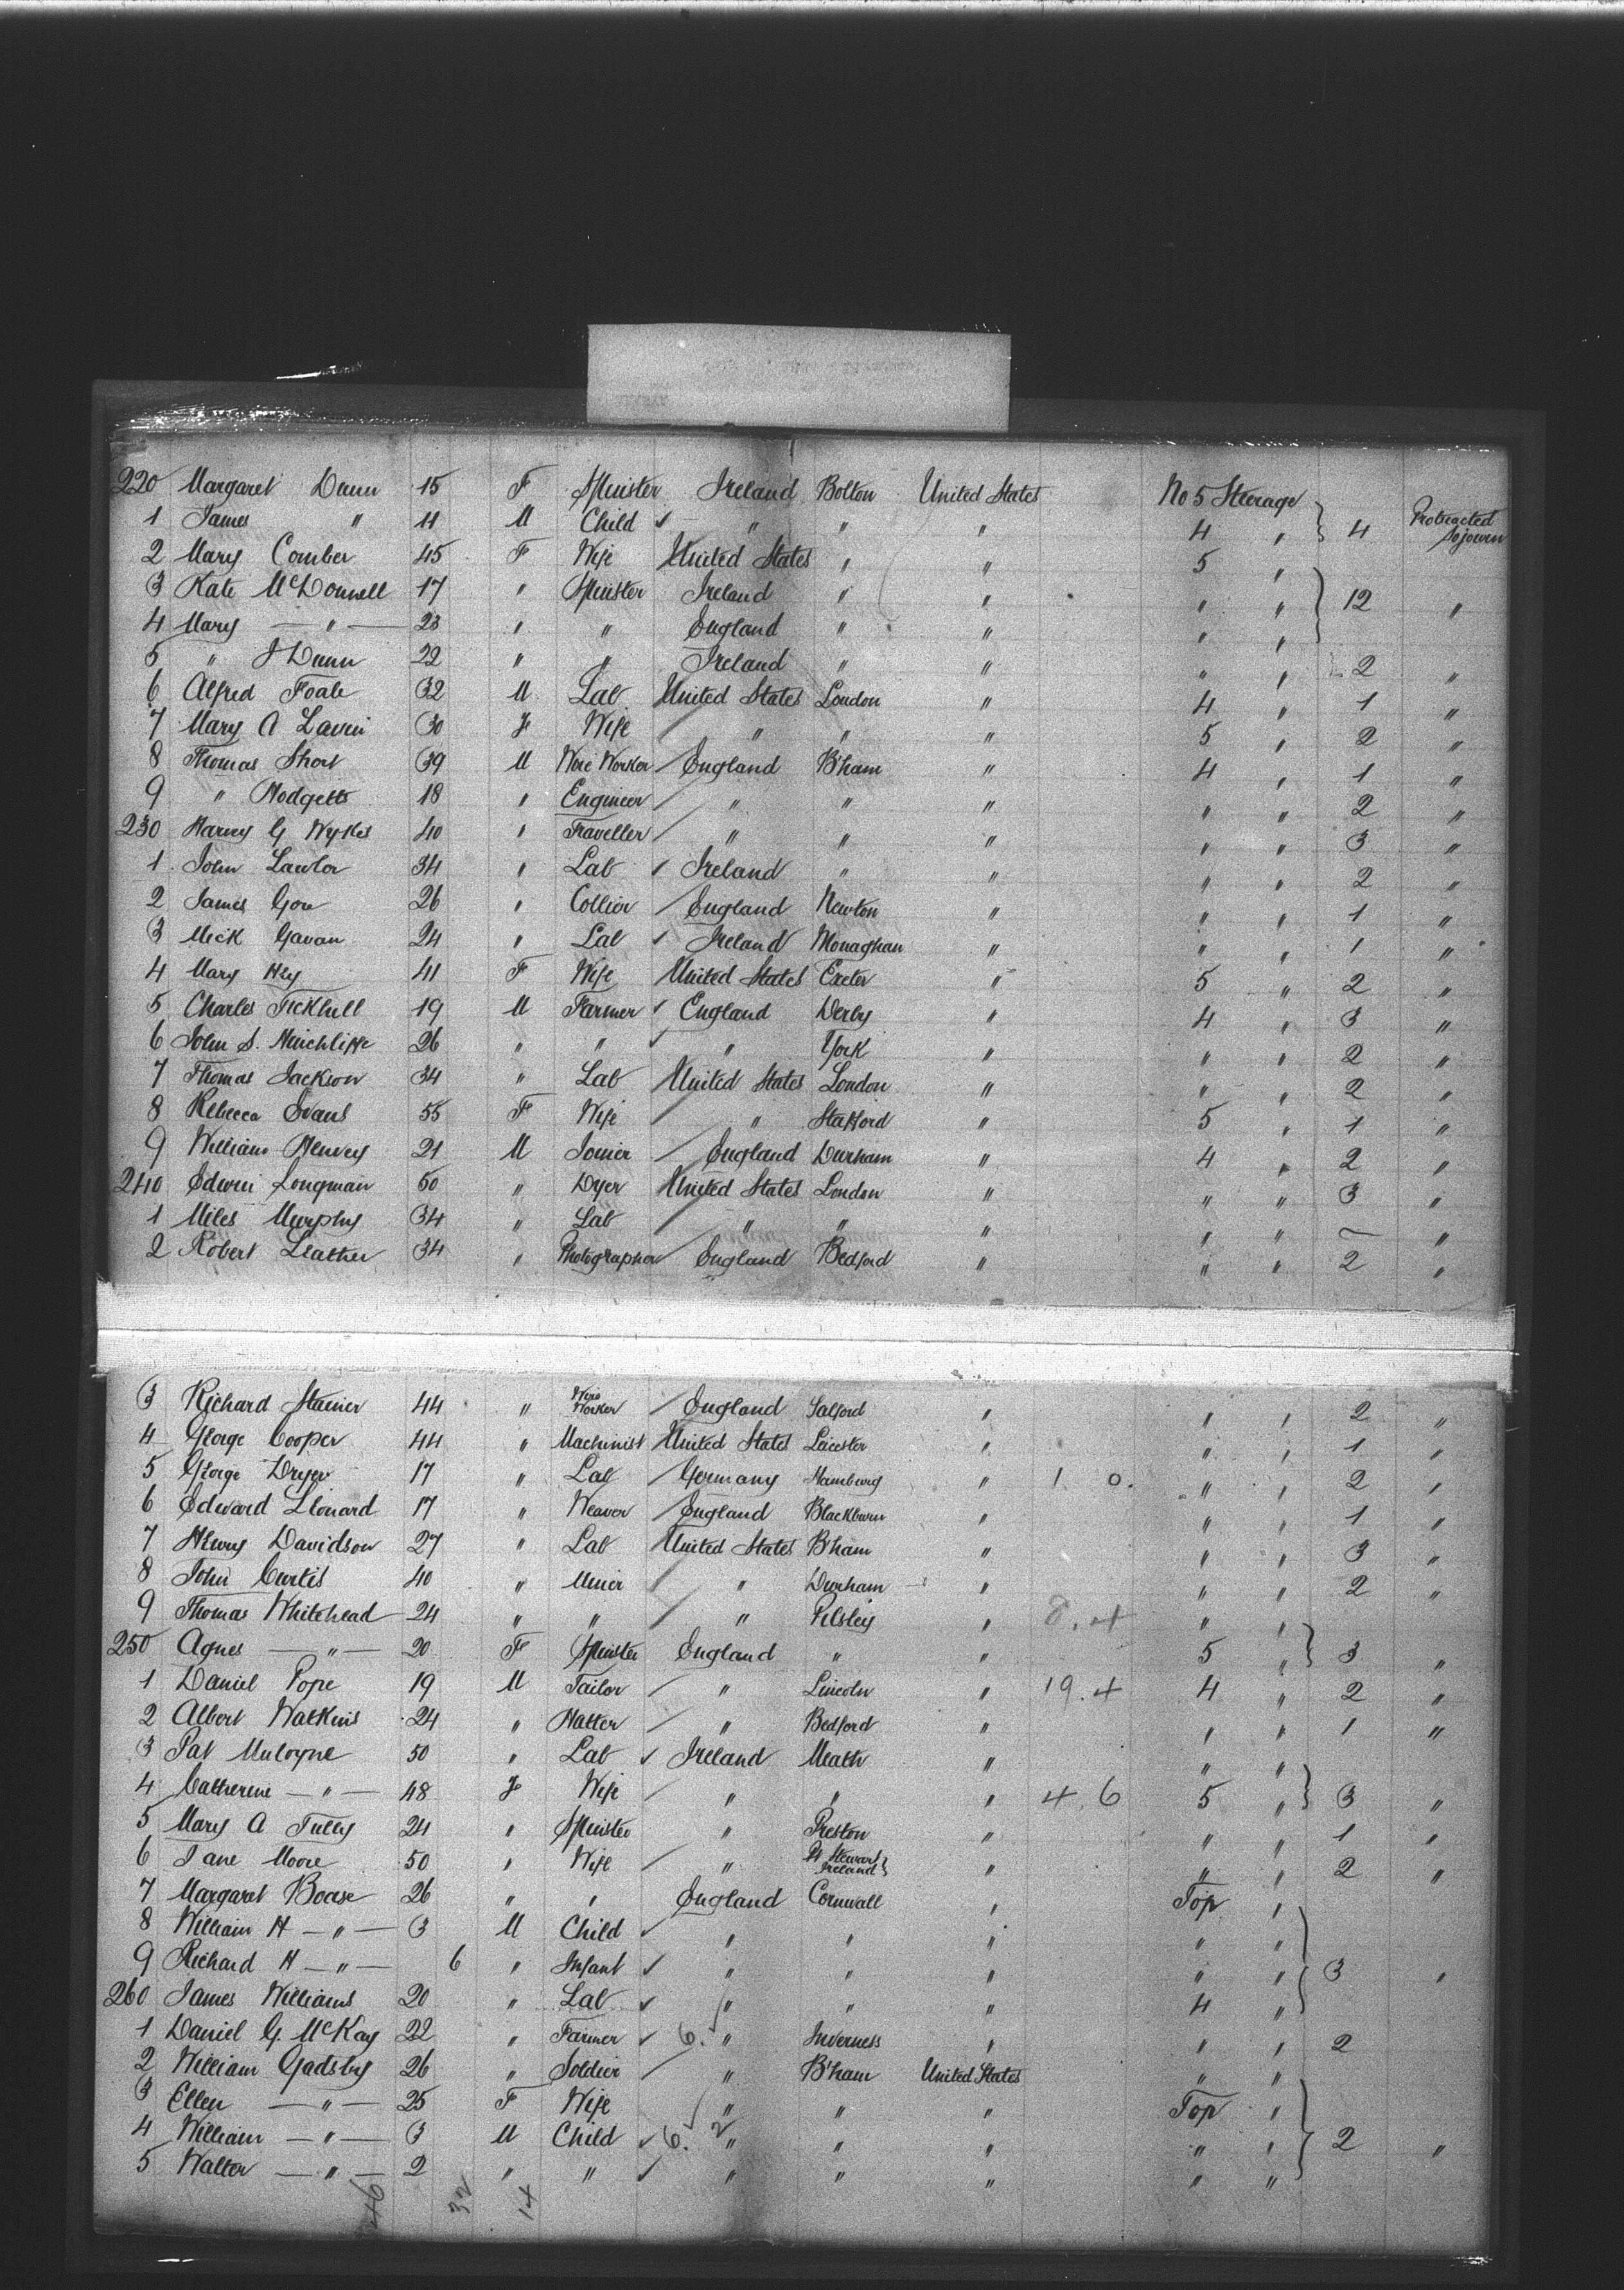 220 Margaret Dunn 15 F Spinster Ireland Bolton United States No 5 Steerage
1 James " 11 M Child ✓ " " " 4 " } 4 Protracted Sojourn
2 Mary Comber 45 F Wife United States " " 5 "
3 Kate McDonnell 17 " Spinster Ireland " " " " } 12 "
4 Mary — " — 23 " " England " " " "
5 " J Dunn 22 " " Ireland " " " " 2 "
6 Alfred Foale 32 M Lab United States London " 4 " 1 "
7 Mary A Lavin 30 F Wife / " " " 5 " 2 "
8 Thomas Short 39 M Wire Worker / England B'ham " 4 " 1 "
9 " Hodgetts 18 " Engineer / " " " " " 2 "
230 Harvey G Wykes 40 " Traveller / " " " " " 3 "
1 John Lawlor 34 " Lab ✓ Ireland " " " " 2 "
2 James Gore 26 " Collier / England Newton " " " 1 "
3 Mick Gavan 24 " Lab ✓ Ireland Monaghan " " " 1 "
4 Mary 41 F Wife United States Exeter " 5 " 2 "
5 Charles Tickhill 19 M Farmer ✓ England Derby " 4 " 3 "
6 John S. Hinchliffe 26 " " ✓ " York " " " 2 "
7 Thomas Jackson 34 " Lab United States London " " " 2 "
8 Rebecca Evans 55 F Wife / " Stafford " 5 " 1 "
9 William Henvey 21 M Joiner / England Durham " 4 " 2 "
240 Edwin Longman 50 " Dyer United States London " " " 3 "
1 Miles Murphy 34 " Lab / " " " " " — "
2 Robert Leather 34 " Photographer / England Bedford " " " 2 "
3 Richard Stainer 44 " Wire Worker / England Salford " " " 2 "
4 George Cooper 44 " Machinist United States Leicester " " " 1 "
5 George Dryer 17 " Lab / Germany Hamburg " 1 0. " " 2 "
6 Edward Leonard 17 " Weaver / England Blackburn " " " 1 "
7 Henry Davidson 27 " Lab United States B'ham " " " 3 "
8 John Curtis 40 " Miner / " Durham " " " 2 "
9 Thomas Whitehead 24 " " / " Pilsley " 8.4 " "
250 Agnes — " — 20 F Spinster England " " 5 " } 3 "
1 Daniel Pope 19 M Tailor / " Lincoln " 19.4 4 " 2 "
2 Albert Watkins 24 " Hatter / " Bedford " " " 1 "
3 Pat Muloyne 50 " Lab ✓ Ireland Meath " " "
4 Catherine — " — 48 F Wife / " " " 4.6 5 " } 3 "
5 Mary A Tully 24 " Spinster " Preston " " " 1 "
6 Jane Moore 50 " Wife / " Pt Stewart Ireland } " " " 2 "
7 Margaret Boase 26 " " England Cornwall " Top "
8 William H — " — 3 M Child ✓ " " " " "
9 Richard H — " — 6 " Infant ✓ " " " " " } 3 "
260 James Williams 20 " Lab ✓ " " " 4 "
1 Daniel G. McKay 22 " Farmer ✓ 6. " Inverness " " " 2
2 William Gadsby 26 " Soldier / " B'ham United States " "
3 Ellen — " — 25 F Wife " " " Top "
4 William — " — 3 M Child ✓ 6. 2 " " " " " } 2 "
5 Walter — " — 2 " " ✓ " " " " "
46 32 14